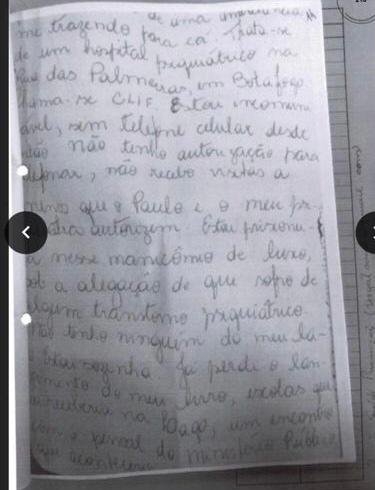 de uma
me trazendo para cá. Trata-se
de um hospital psiquiátrico na
Rua das Palmeiras, em Botafogo
chama-se CLIF. Estou incomuni
ável, sem telefone celular desde
não tenho autorização para
, não recebo visitas a
que o Paulo e o meu
autorizem. Estou prisionei-
a nesse manicômio de luxo,
sob a alegação de que sofro de
algum transtorno psiquiátrico.
não tenho ninguém do meu la-
sozinha. Já perdi o lan-
çamento do meu livro, escolas que
na um encontro
com o pessoal do Ministério Público